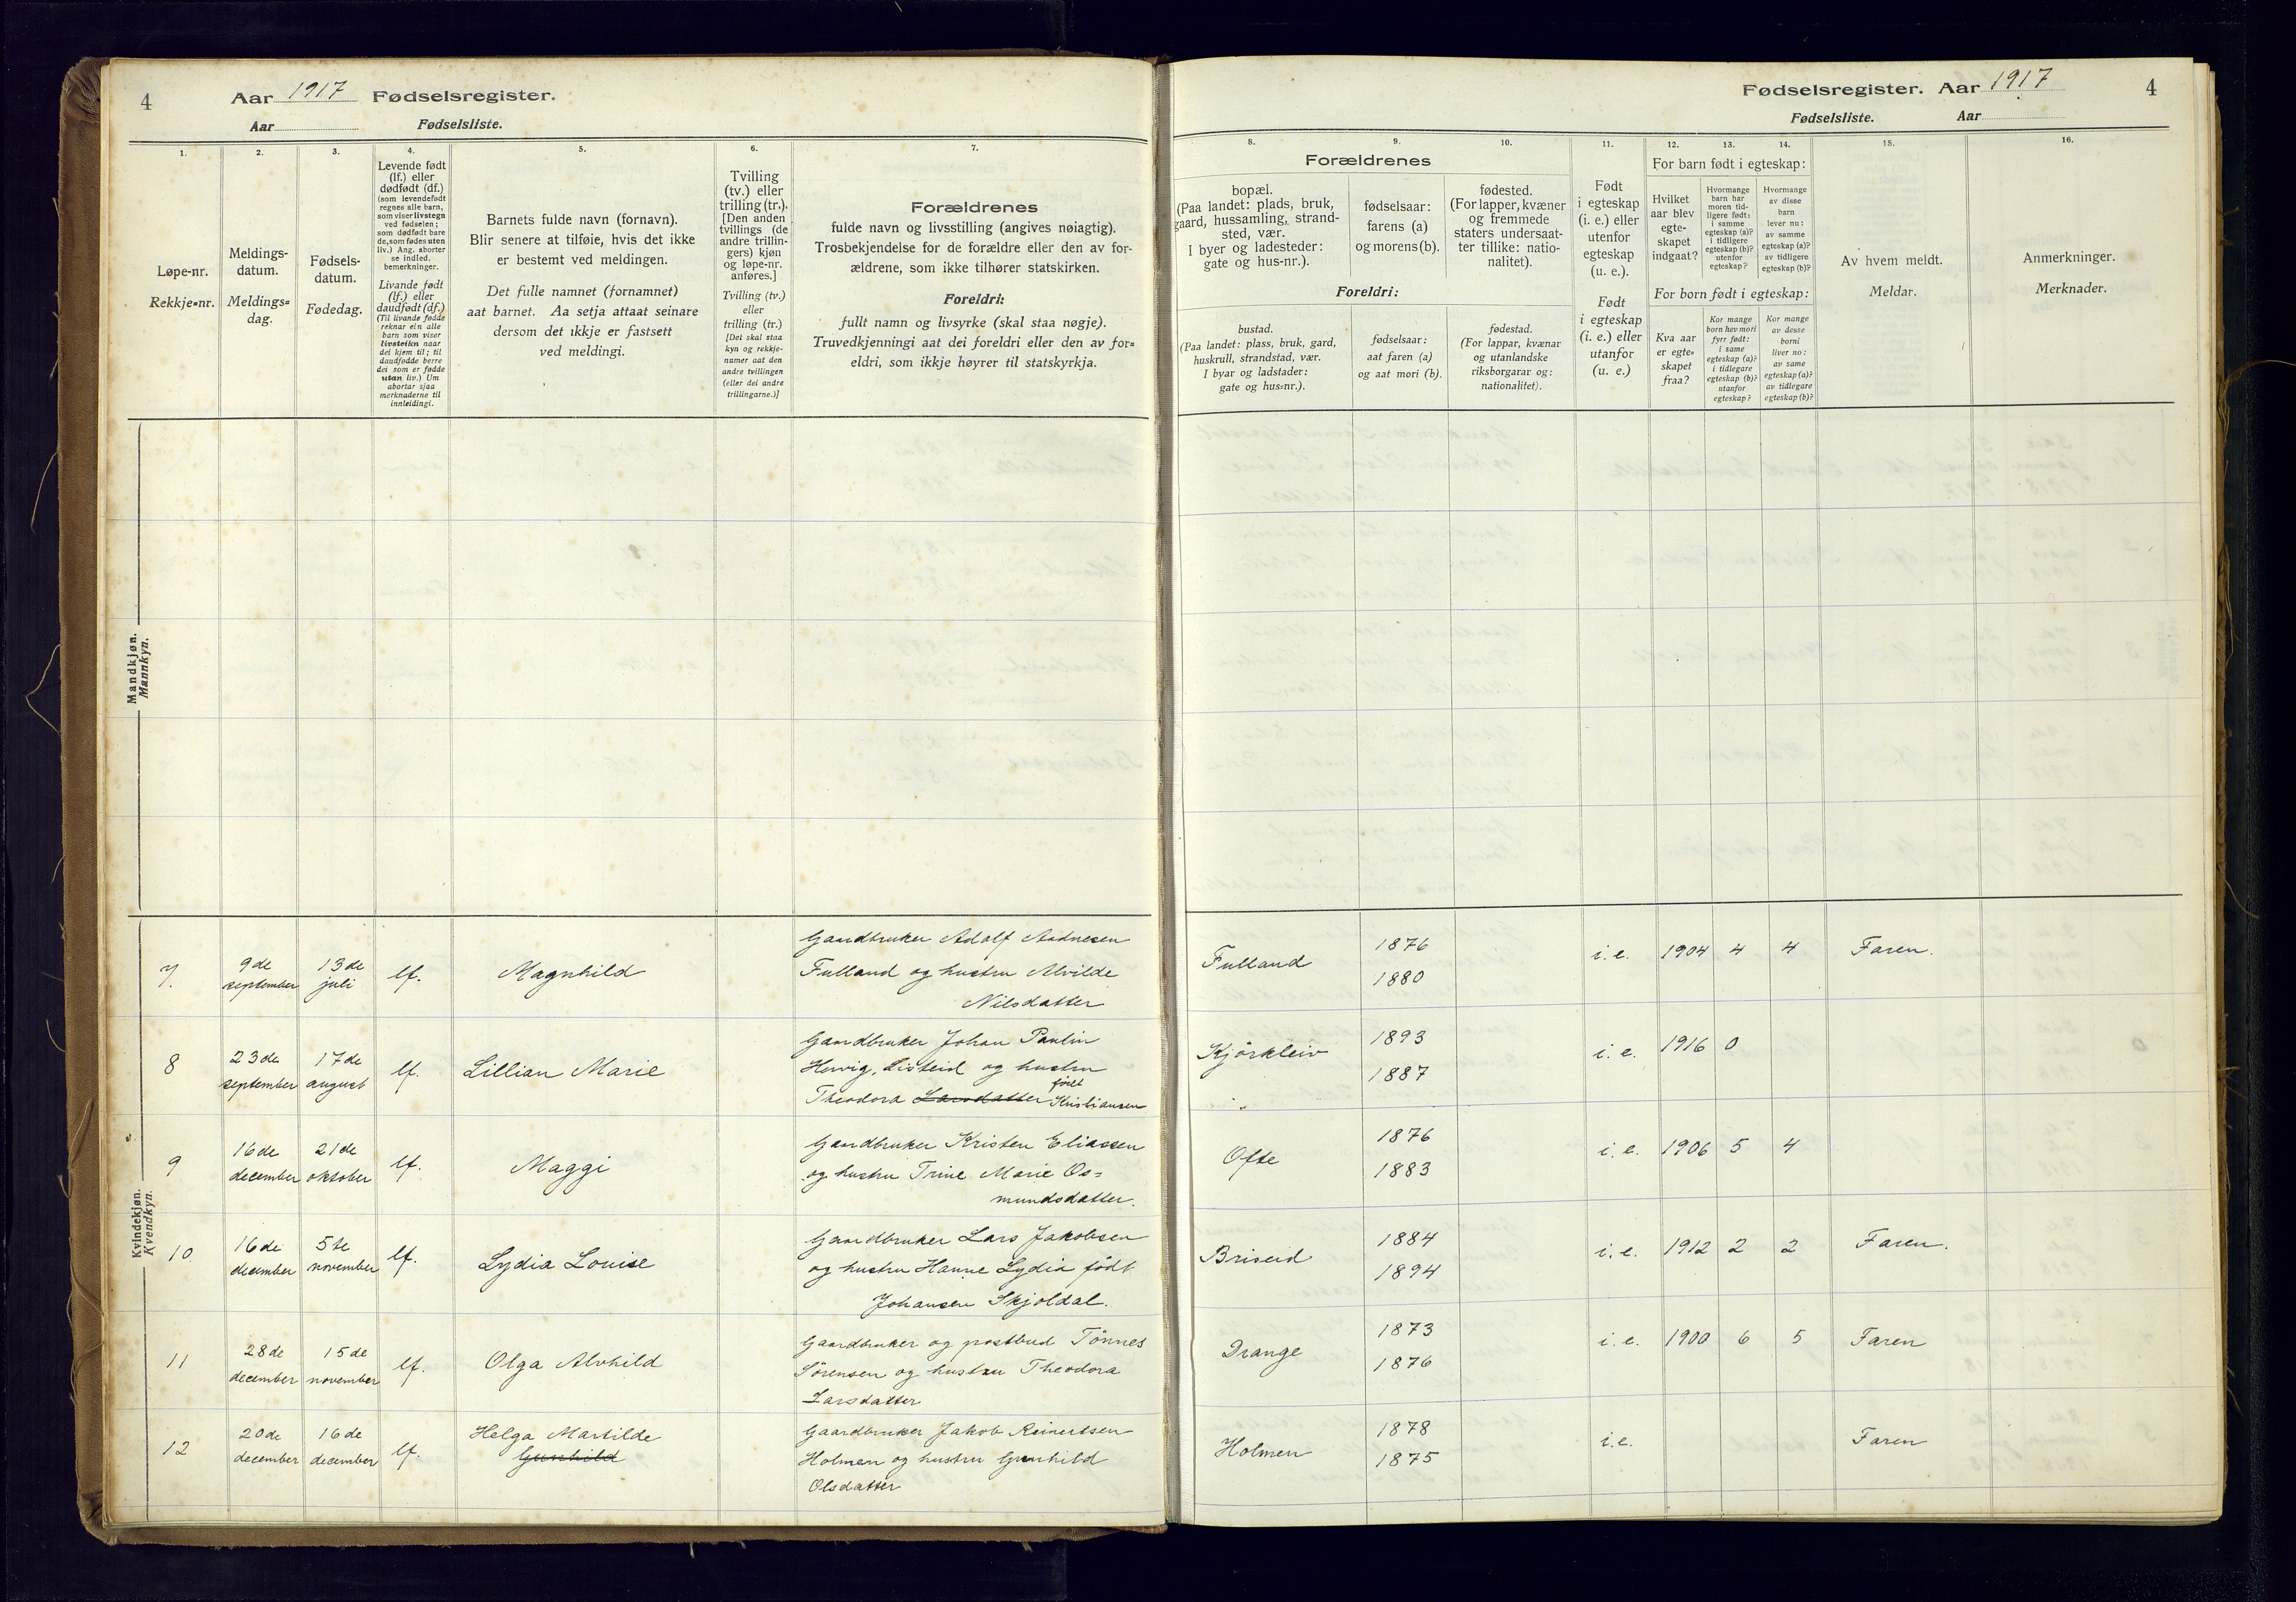 4
Aar 1917 Fødselsregister.
Aar Fødselsliste.
Fødselsregister. Aar 1917
4
Fødselsliste. Aar
1.
Løpe-nr.
Rekkje=nr.
2.
Meldings-
datum.
Meldings=
dag.
3.
Fødsels-
datum.
Fødedag.
4.
Levende født
(lf.) eller
dødfødt (df.)
(som levendefødt
regnes alle barn,
som viser livstegn
ved fødselen;
som dødfødt bare
de, som fødes uten
liv.) Ang. aborter
se indled.
bemerkninger.
Livande født
(lf.) eller
daudfødt (df.)
(Til livande fødde
reknar ein alle
barn som viser
livsteikn naar
dei kjem til; til
daudfødde berre
dei som er fødde
utan liv.) Um
abortar sjaa
merknaderne til
innleidingi.
5.
Barnets fulde navn (fornavn).
Blir senere at tilføie, hvis det ikke
er bestemt ved meldingen.
Det fulle namnet (fornamnet)
aat barnet. Aa setja attaat seinare
dersom det ikkje er fastsett
ved meldingi.
6.
Tvilling
(tv.) eller
trilling (tr.).
[Den anden
tvillings (de
andre trillin-
gers) kjøn
og løpe-nr.
anføres.]
Tvilling (tv.)
eller
trilling (tr.)
[Dei skal staa
kyn og rekkje-
numer aat den
andre tvillingen
(eller dei andre
trillingarne.)]
7.
Forældrenes
fulde navn og livsstilling (angives nøiagtig).
Trosbekjendelse for de forældre eller den av for-
ældrene, som ikke tilhører statskirken.
Foreldri:
fullt namn og livsyrke (skal staa nøgje).
Truvedkjenningi aat dei foreldri eller den av for=
eldri, som ikkje høyrer til statskyrkja.
8.
9.
10.
Forældrenes
bopæl.
(Paa landet: plads, bruk,
gaard, hussamling, strand-
sted, vær.
I byer og ladesteder:
gate og hus-nr.).
fødselsaar:
farens (a)
og morens (b).
fødested.
(For lapper, kvæner
og fremmede
staters undersaat-
ter tillike: natio-
nalitet).
Foreldri:
bustad.
(Paa landet: plass, bruk, gard,
huskrull, strandstad, vær.
I byar og ladstader:
gate og hus=nr.).
fødselsaar:
aat faren (a)
og aat mori (b).
fødestad.
(For lappar, kvænar
og utanlandske
riksborgarar og:
nationalitet).
11.
Født
i egteskap
(i. e.) eller
utenfor
egteskap
(u. e.).
Født
i egteskap
(i. e.) eller
utanfor
(u. e.)
12.
13.
14.
For barn født i egteskap:
Hvilket
aar blev
egte-
skapet
indgaat?
Hvormange
barn har
moren tid-
ligere født:
i samme
egteskap (a)?
i tidligere
egteskap (b)?
utenfor
egteskap?
Hvormange
av disse
barn
lever nu:
av samme
egteskap (a)?
av tidligere
egteskap (b)?
For born født i egteskap:
Kva aar
er egte=
skapet
fraa?
Kor mange
born hev mori
fyrr født:
i same
egteskap (a)?
i tidlegare
egteskap (b)?
utanfor
egteskap?
Kor mange
av desse
borni
liver no:
av same
egteskap (a)?
av tidlegare
egteskap (b)?
15.
Av hvem meldt.
Meldar.
16.
Anmerkninger.
Merknader.
Mandkjøn.
Mannkyn.
Kvindekjøn.
Kvendkyn.
7.
9de
september
13de
juli
lf.
Magnhild
Gaardbruker Adolf Andnesen
Fulland og hustru Alvilde
Nilsdatter
Fulland
1876
1880
i. e.
1904
4
4
Faren.
8
23de
september
17de
august
lf.
Lillian Marie
Gaardbruker Johan Paulin
Hervig, Listeid og hustru
født
Theodora Larsdatter Kristiansen
Kjörkleiv
1893
1887
i. e.
1916
0
9
16de
december
21de
oktober
lf.
Maggi
Gaardbruker Kristen Eliassen
og hustru Trine Marie Os=
mundsdatter.
Ofte
1876
1883
i. e.
1906
5
4
10
16de
december
5te
november
lf.
Lydia Louise
Gaardbruker Lars Jakobsen
og hustru Hanne Lydia født
Johansen Skjoldal.
Briseid
1884
1894
i. e.
1912
2
2
Faren.
11
28de
december
15de
november
lf.
Olga Alvhild
Gaardbruker og postbud Tönnes
Sörensen og hustru Theodora
Larsdatter
Drange
1873
1876
i. e.
1900
6
5
Faren
12
20de
december
16de
december
lf.
Helga Martilde
Gunhild
Gaardbruker Jakob Reinertsen
Holmen og hustru Gunhild
Olsdatter
Holmen
1878
1875
i. e.
Faren